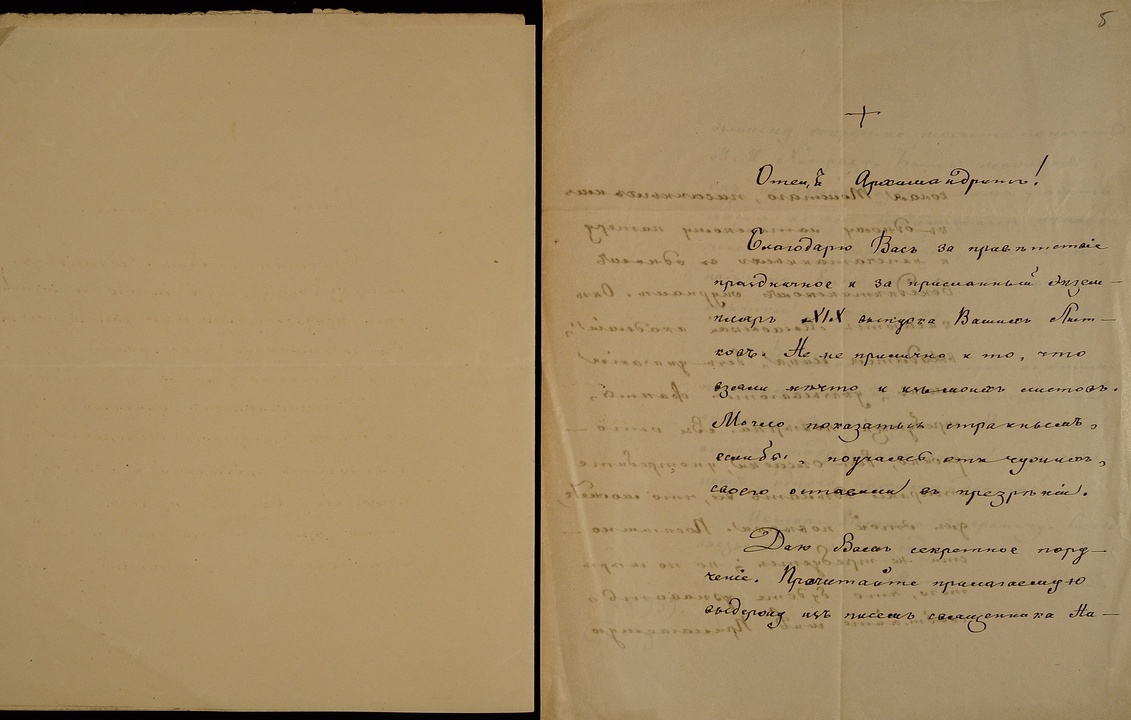 5
Отецъ Архимандритъ!
Благодарю Васъ за привѣтствіе
праздничное и за присланный экзем-
пляръ XIX выпуска Вашихъ Лист-
ковъ. Не не прилично и то, что
взяли нѣчто и изъ моихъ листовъ.
Могло показаться страннымъ,
еслибы, поучаясь отъ чужихъ,
своего оставили въ презрѣніи.
Даю Вамъ секретное пору-
ченіе. Прочитайте прилагаемую
выдержку изъ писемъ священника На-